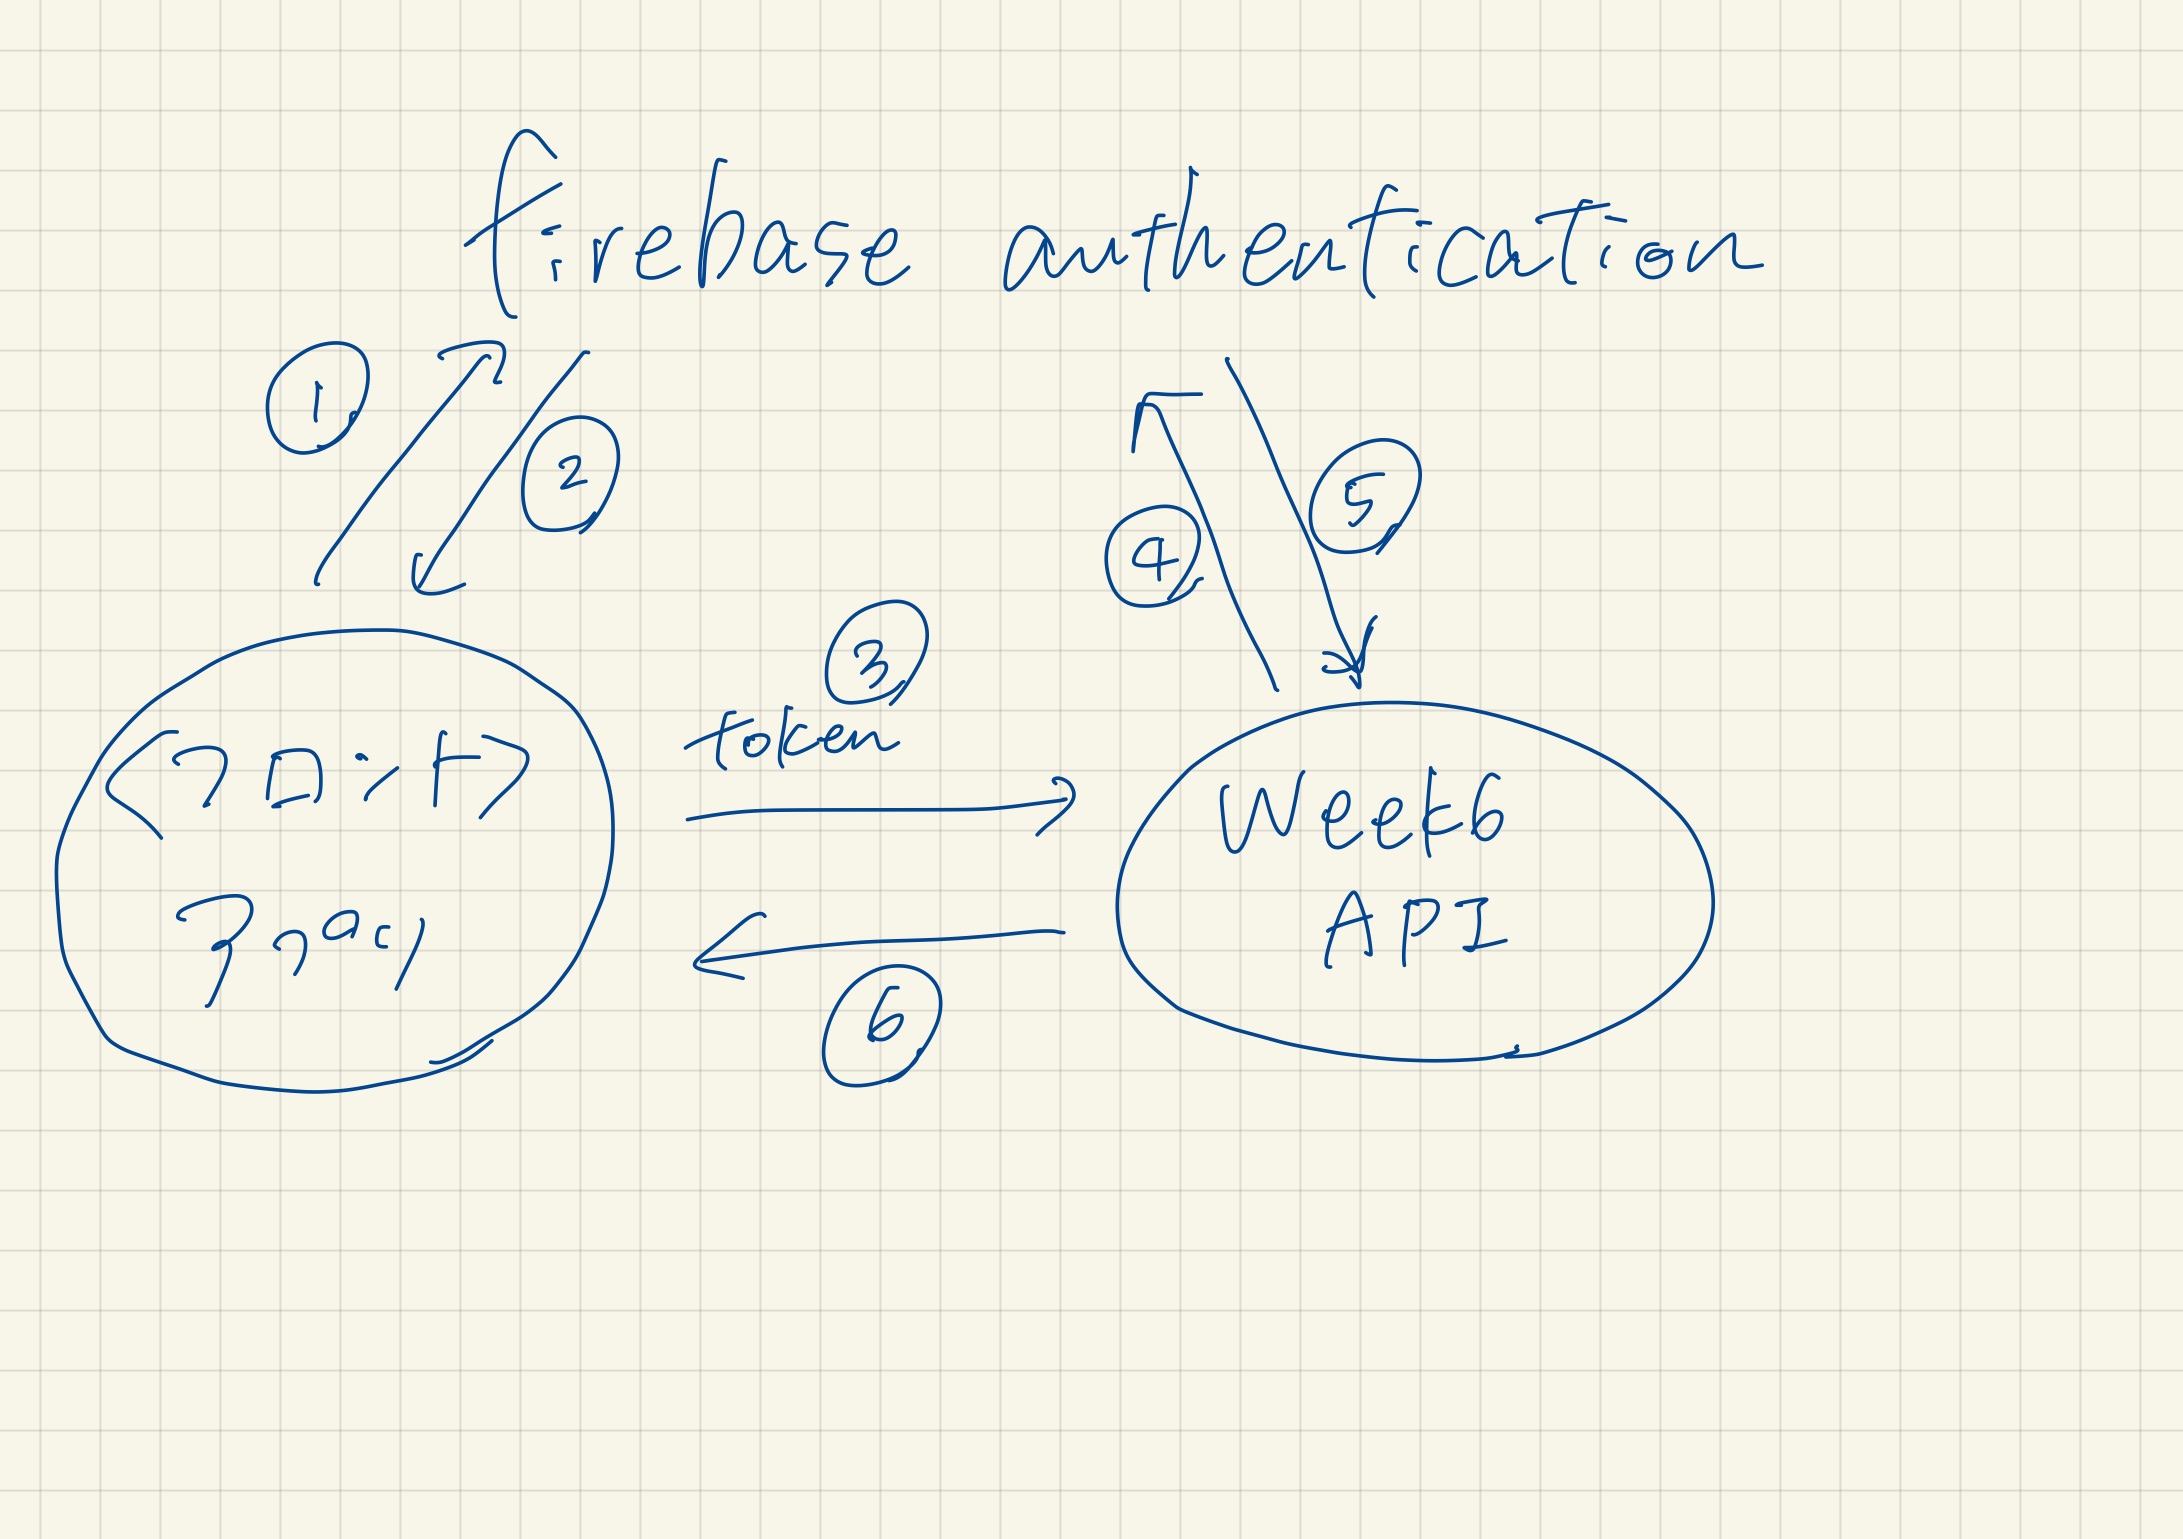 firebase authentication
①
②
③
④
⑤
token
Week6
API
⑥